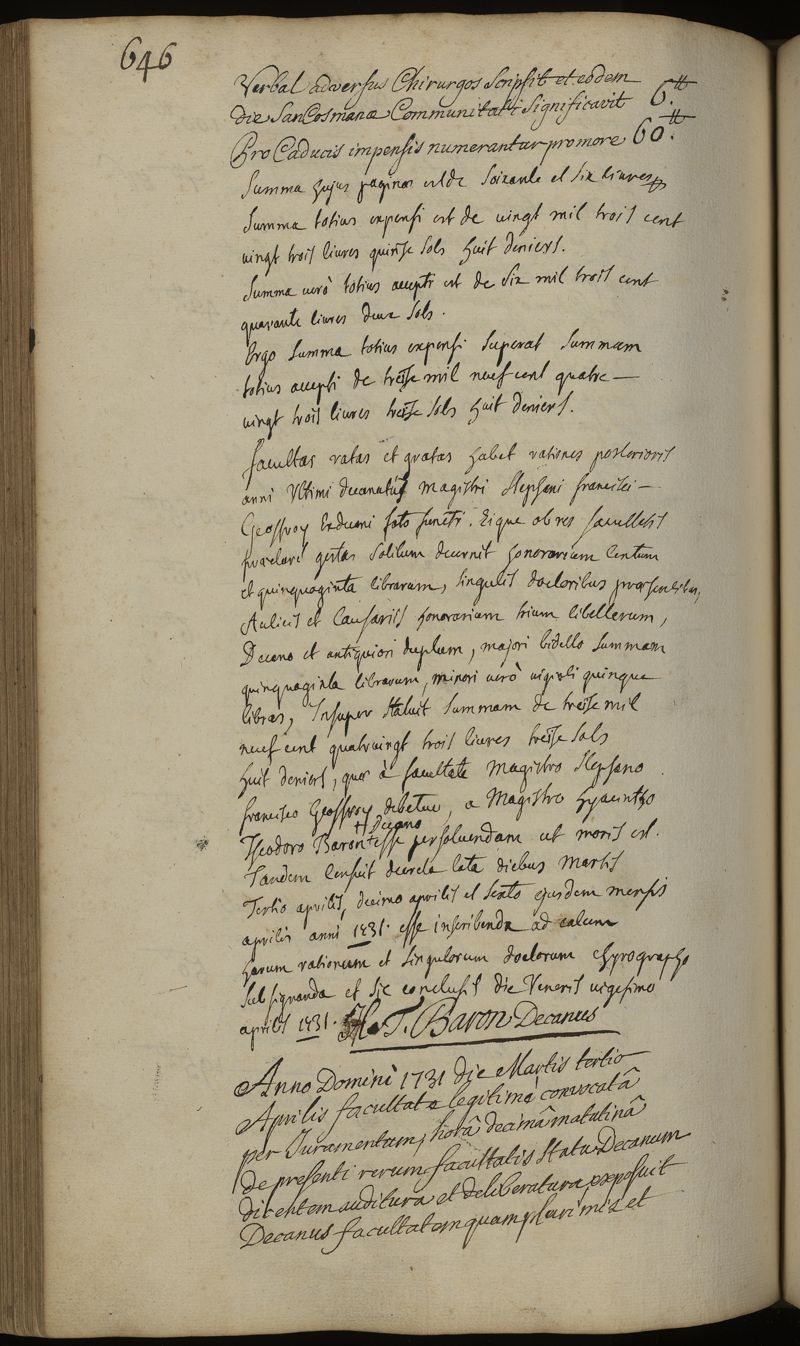 646
Verbal adversus Chirurgos Scripsit et eodem
die SanCosmanæ Communitati Significavit 6.tt
Pro Caducis impensis numerantur pro more 60.tt
Summa hujus paginæ est de Soixante et Six livres
Summa totius expensi est de vingt mil trois cent
vingt trois livres quinse Sols huit deniers.
Summa verò totius accepti est de Six mil trois cent
quarante livres deux Sols.
Ergo Summa totius expensi Superat Summam
totius accepti de treise mil neuf cent quatre —
vingt trois livres treise Sols huit deniers.
facultas ratas et gratas habet rationes posterioris
anni Ultimi Decanatûs Magistri Stephani francisci —
Geoffroy Exdecani fato functi. Eique ob res facultatis
præclarè gestas Solitum decernit honorarium Centum
et quinquaginta librarum, Singulis doctoribus præsentibus,
Aulicis et Causariis honorarium trium libellorum,
Decano et antiquiori duplum, majori bidello Summam
quinquaginta librarum, minori verò viginti quinque
libras, Insuper Statuit Summam de treise mil
neuf cent quatrevingt trois livres treise Sols
huit deniers, quæ à facultate Magistro Stephano
francisco Geoffroy debetur, a Magistro hyacintho
Decano
Theodoro Baron esse persoluendam ut moris est.
Tandem Censuit decreta lata diebus Martis
Tertio aprilis, decimo aprilis et Sexto ejusdem mensis
aprilis anni 1731. esse inscribenda ad calcem
harum rationum et Singulorum doctorum chyrographo
Subsignanda et Sic conclusit die Veneris vigesimo
aprilis 1731. H. T. Baron Decanus
Anno Domini 1731 die Martis tertio
Aprilis facultate legitimé convocatâ
per Juramentum, horâ decimâ matutinâ
de presenti rerum facultatis Statu Decanum
dicentem auditura et deliberatura, exposuit
Decanus facultatem quam plurimis et